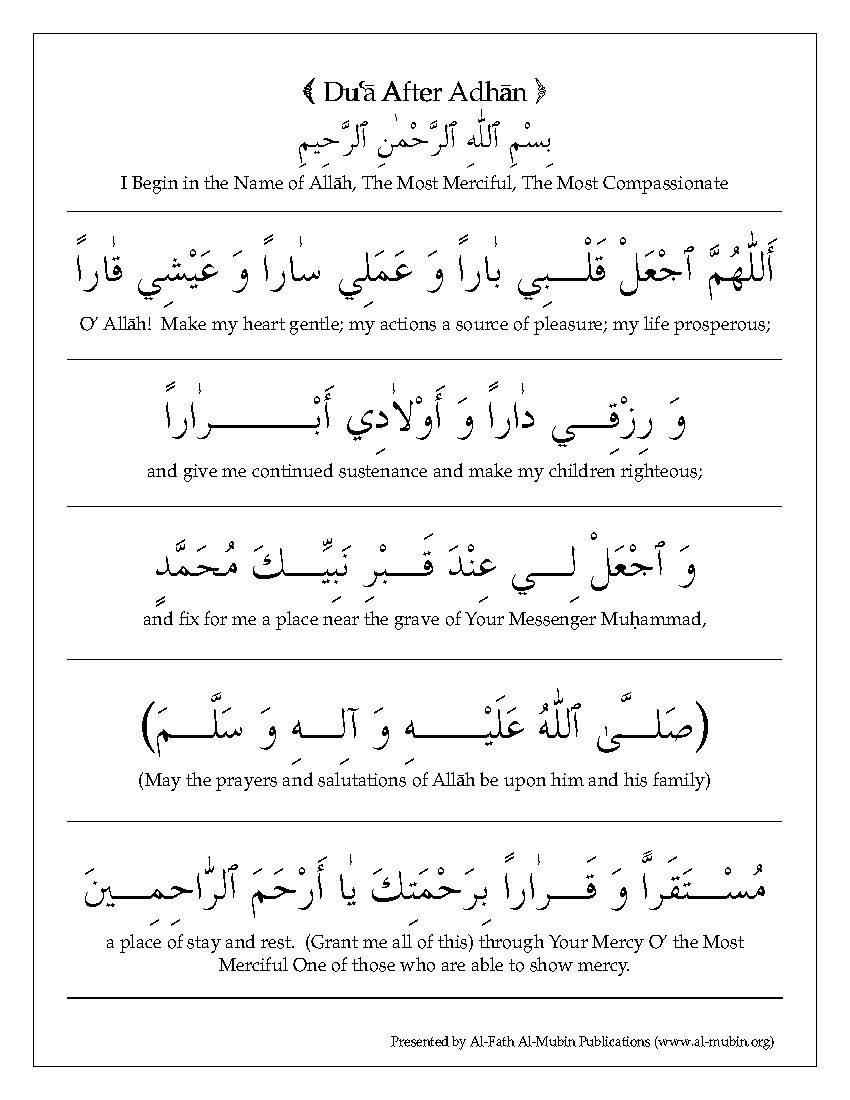 ﴾ Duʿā After Adhān ﴿
بِسْمِ ٱللّٰهِ ٱلرَّحْمٰنِ ٱلرَّحِيمِ
I Begin in the Name of Allāh, The Most Merciful, The Most Compassionate
أَللّٰهُمَّ ٱجْعَلْ قَلْـــبِي بٰاراً وَ عَمَلِي سٰاراً وَ عَيْشِي قٰاراً
O’ Allāh! Make my heart gentle; my actions a source of pleasure; my life prosperous;
وَ رِزْقِـــي دٰاراً وَ أَوْلاٰدِي أَبْـــــــرٰاراً
and give me continued sustenance and make my children righteous;
وَ ٱجْعَلْ لِـــي عِنْدَ قَـــبْرِ نَبِيِّـــكَ مُحَمَّدٍ
and fix for me a place near the grave of Your Messenger Muḥammad,
(صَلـــَّىٰ ٱللّٰهُ عَلَيْـــــــهِ وَ آلِـــهِ وَ سَلَّـــمَ)
(May the prayers and salutations of Allāh be upon him and his family)
مُسْـــتَقَراًّ وَ قَـــرٰاراً بِرَحْمَتِكَ يٰا أَرْحَمَ ٱلرّٰاحِمِـــينَ
a place of stay and rest. (Grant me all of this) through Your Mercy O’ the Most
Merciful One of those who are able to show mercy.
Presented by Al-Fath Al-Mubin Publications (www.al-mubin.org)